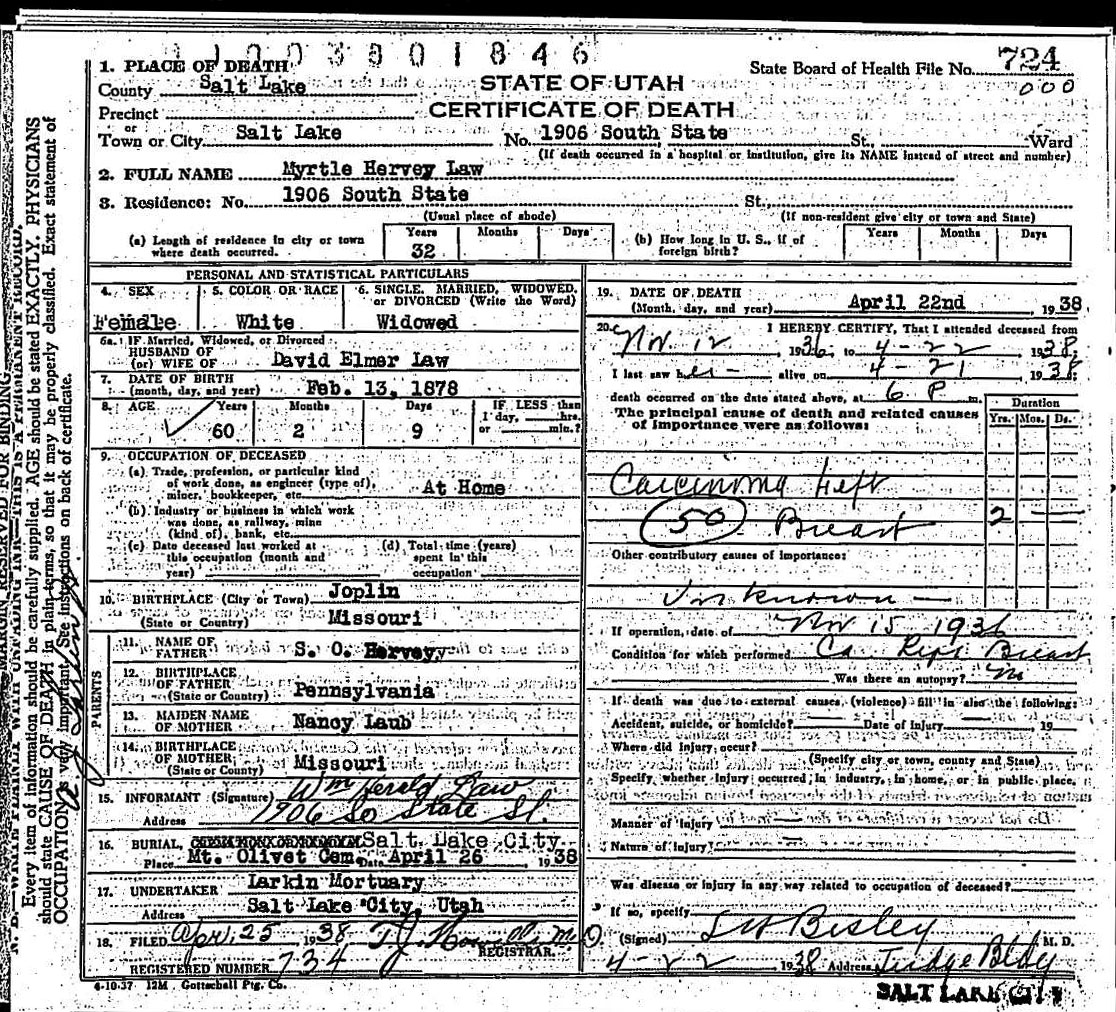 11003801846
1. PLACE OF DEATH
County Salt Lake
STATE OF UTAH
State Board of Health File No. 724
000
Precinct
CERTIFICATE OF DEATH
or
Town or City Salt Lake No. 1906 South State St., Ward
(If death occurred in a hospital or institution, give its NAME instead of street and number)
2. FULL NAME Myrtle Hervey Law
3. Residence: No. 1906 South State St.
(Usual place of abode) (If non-resident give city or town and State)
(a) Length of residence in city or town where death occurred. Years 32 Months Days
(b) How long in U. S., if of foreign birth? Years Months Days
PERSONAL AND STATISTICAL PARTICULARS
4. SEX Female
5. COLOR OR RACE White
6. SINGLE, MARRIED, WIDOWED, or DIVORCED (Write the Word) Widowed
6a. IF Married, Widowed, or Divorced
HUSBAND OF
(or) WIFE OF David Elmer Law
7. DATE OF BIRTH
(month, day, and year) Feb. 13, 1878
8. AGE Years 60 Months 2 Days 9
IF LESS than
1 day, hrs.
or min.?
9. OCCUPATION OF DECEASED
(a) Trade, profession, or particular kind
of work done, as engineer (type of),
miner, bookkeeper, etc. At Home
(b) Industry or business in which work
was done, as railway, mine
(kind of), bank, etc.
(c) Date deceased last worked at
this occupation (month and
year)
(d) Total time (years)
spent in this
occupation
10. BIRTHPLACE (City or Town) Joplin
(State or Country) Missouri
PARENTS
11. NAME OF
FATHER S. O. Hervey
12. BIRTHPLACE
OF FATHER
(State or Country) Pennsylvania
13. MAIDEN NAME
OF MOTHER Nancy Laub
14. BIRTHPLACE
OF MOTHER
(State or Country) Missouri
15. INFORMANT (Signature) Wm Herald Law
Address 1906 So State St.
16. BURIAL, Salt Lake City
Place Mt. Olivet Cem. Date April 26 1938
17. UNDERTAKER Larkin Mortuary
Address Salt Lake City, Utah
18. FILED Apr. 25 1938 M.D.
REGISTRAR.
REGISTERED NUMBER 734
4-10-37 12M Gottschall Ptg. Co.
19. DATE OF DEATH
(Month, day, and year) April 22nd 1938
20. I HEREBY CERTIFY, That I attended deceased from
Nov 12 1936, to 4-22 1938.
I last saw her alive on 4-21 1938;
death occurred on the date stated above, at 6 P m.
The principal cause of death and related causes
of importance were as follows:
Duration
Yrs. Mos. Ds.
Carcinoma Left
50 Breast 2
Other contributory causes of importance:
Unknown
If operation, date of Nov 15 1936
Condition for which performed Ca Breast
Was there an autopsy? No
If death was due to external causes (violence) fill in also the following:
Accident, suicide, or homicide? Date of Injury 19
Where did injury occur?
(Specify city or town, county and State)
Specify whether injury occurred in industry, in home, or in public place.
Manner of Injury
Nature of Injury
Was disease or injury in any way related to occupation of deceased?
If so, specify
(Signed) Bisley M. D.
4-22 1938 Address Judge Bldg
SALT LAKE CITY
MARGIN RESERVED FOR BINDING
N. B.—WRITE PLAINLY WITH UNFADING INK—THIS IS A PERMANENT RECORD.
Every item of information should be carefully supplied. AGE should be stated EXACTLY. PHYSICIANS
should state CAUSE OF DEATH in plain terms, so that it may be properly classified. Exact statement of
OCCUPATION is very important. See instructions on back of certificate.